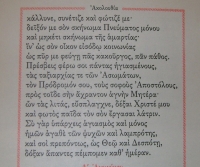 Ἀκολουθία
κάλλυνε, συνέτιζε καὶ φώτιζέ με·
δεῖξον με σὸν σκήνωμα Πνεύματος μόνου
καὶ μηκέτι σκήνωμα τῆς ἁμαρτίας·
Ἵν' ὡς σὸν οἶκον εἰσόδῳ κοινωνίας
ὡς πῦρ με φεύγῃ πᾶς κακοῦργος, πᾶν πάθος.
Πρέσβεις φέρω σοι πάντας ἡγιασμένους,
τὰς ταξιαρχίας τε τῶν Ἀσωμάτων,
τὸν Πρόδρομόν σου, τοὺς σοφοὺς Ἀποστόλους,
πρὸς τοῖσδε σὴν ἄχραντον ἁγνὴν Μητέρα·
Ὧν τὰς λιτάς, εὔσπλαγχνε, δέξαι Χριστέ μου
καὶ φωτὸς παῖδα τὸν σὸν ἔργασαι λάτριν.
Σὺ γὰρ ὑπάρχεις ἁγιασμὸς καὶ μόνος
ἡμῶν ἀγαθὲ τῶν ψυχῶν καὶ λαμπρότης,
καὶ σοὶ πρεπόντως, ὡς Θεῷ καὶ Δεσπότῃ,
δόξαν ἅπαντες πέμπομεν καθ' ἡμέραν.